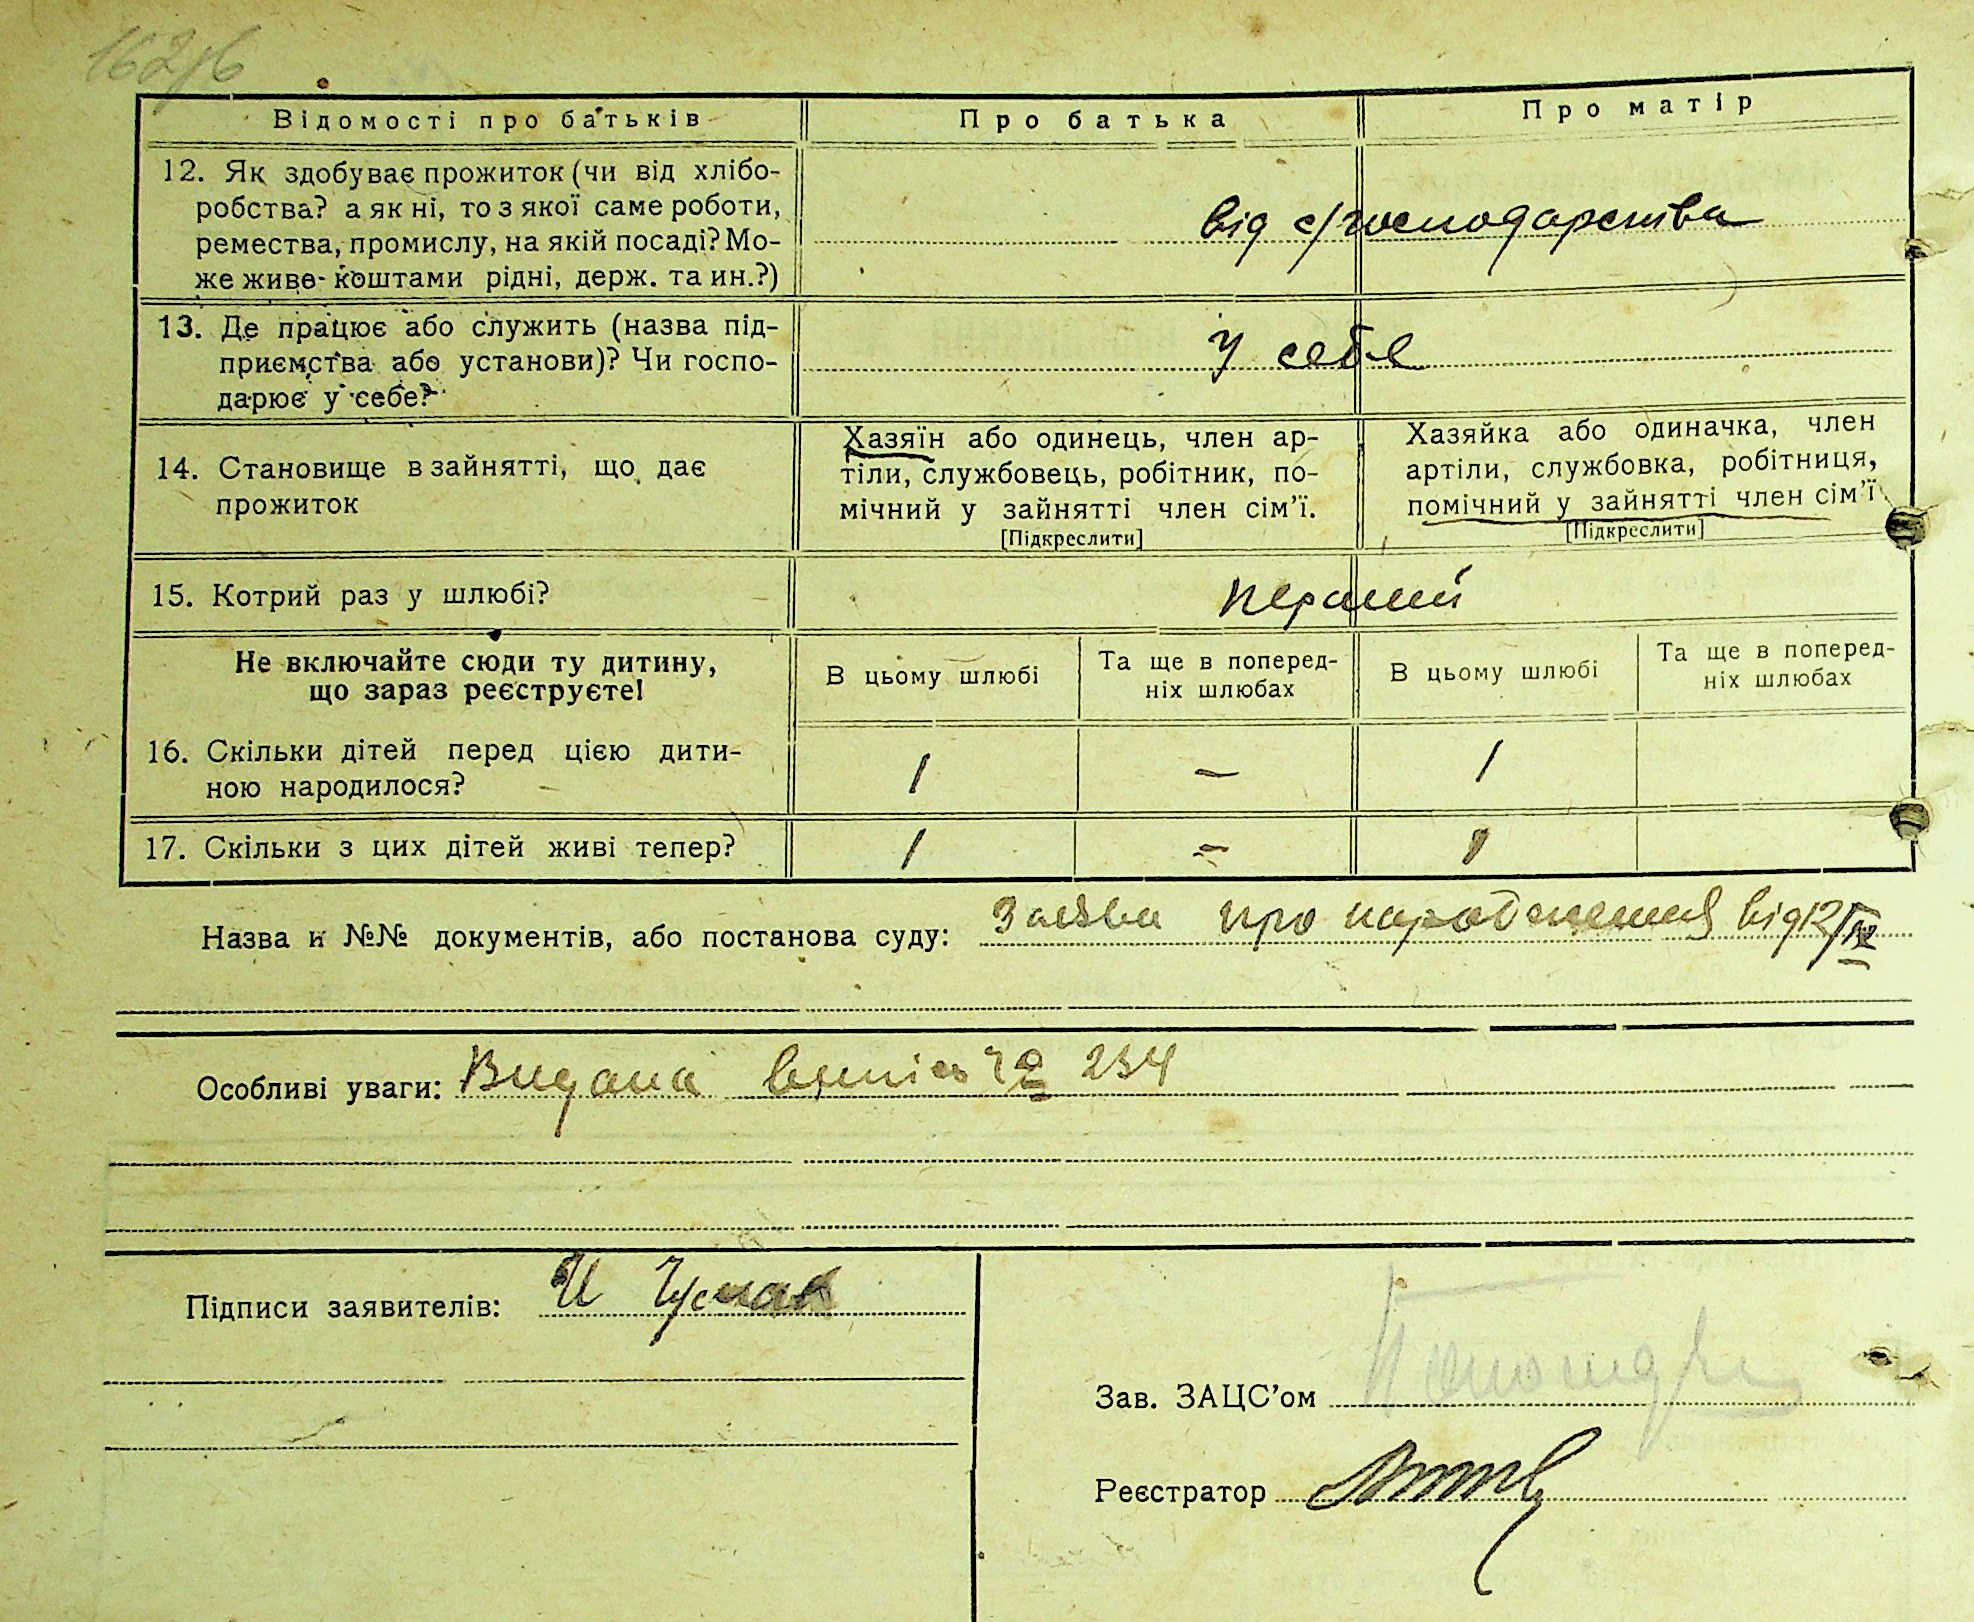 162/6
Відомості про батьків
Про батька
Про матір
12. Як здобуває прожиток (чи від хлібо-
робства? а як ні, то з якої саме роботи,
ремества, промислу, на якій посаді? Мо-
же живе коштами рідні, держ. та ин.?)
від с/господарства
13. Де працює або служить (назва під-
приємства або установи)? Чи госпо-
дарює у себе?
у себе
14. Становище в зайнятті, що дає
прожиток
Хазяїн або одинець, член ар-
тіли, службовець, робітник, по-
мічний у зайнятті член сім’ї.
[Підкреслити]
Хазяйка або одиначка, член
артіли, службовка, робітниця,
помічний у зайнятті член сім’ї
[Підкреслити]
15. Котрий раз у шлюбі?
перший
Не включайте сюди ту дитину,
що зараз реєструєте!
В цьому шлюбі
Та ще в поперед-
ніх шлюбах
В цьому шлюбі
Та ще в поперед-
ніх шлюбах
16. Скільки дітей перед цією дити-
ною народилося?
1 — 1
17. Скільки з цих дітей живі тепер?
1 — 1
Назва и №№ документів, або постанова суду: Заява про народження від 12/IV
Особливі уваги: Видана 234
Підписи заявителів: И Гусмак
Зав. ЗАЦС’ом
Реєстратор